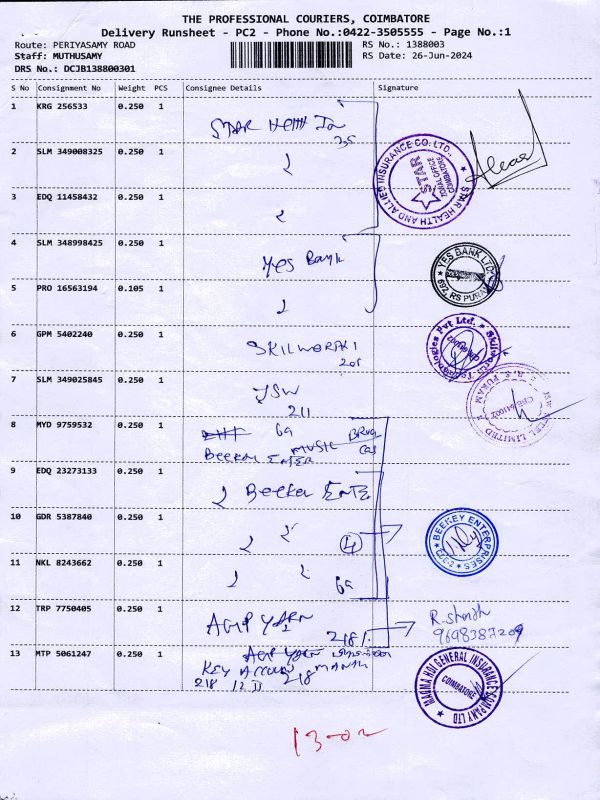 THE PROFESSIONAL COURIERS, COIMBATORE
Delivery Runsheet - PC2 - Phone No.:0422-3505555 - Page No.:1
Route: PERIYASAMY ROAD
RS No.: 1388003
Staff: MUTHUSAMY
RS Date: 26-Jun-2024
DRS No.: DCJB138800301
S No Consignment No Weight PCS Consignee Details Signature
1 KRG 256533 0.250 1
STAR Health In
2 SLM 349008325 0.250 1
STAR HEALTH AND ALLIED INSURANCE CO. LTD.,
STAR
ZONAL OFFICE
COIMBATORE
3 EDQ 11458432 0.250 1
4 SLM 348998425 0.250 1
Yes Bank
YES BANK LTD
692, RS PURAM
5 PRO 16563194 0.105 1
6 GPM 5402240 0.250 1
SKILWORAKI
201
7 SLM 349025845 0.250 1
JSW
211
R.S. PURAM
LIMITED
8 MYD 9759532 0.250 1
69
MUSIC
BEEKAY ENTER
9 EDQ 23273133 0.250 1
Beekay ENTE
10 GDR 5387840 0.250 1
4
BEEKEY ENTERPRISES
CBE-2
11 NKL 8243662 0.250 1
69
12 TRP 7750405 0.250 1
AGIP YARN
218
R.
9698387209
13 MTP 5061247 0.250 1
KEY
218 12 II 218
MAGMA HDI GENERAL INSURANCE COMPANY LTD
COIMBATORE
13-02